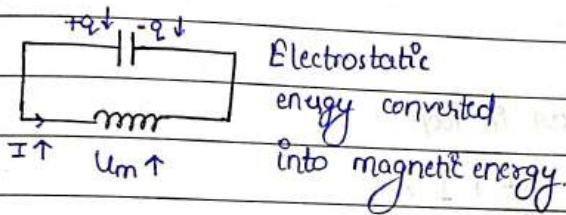 +q↓ -q↓
Electrostatic
energy converted
I↑ Um↑ into magnetic energy.